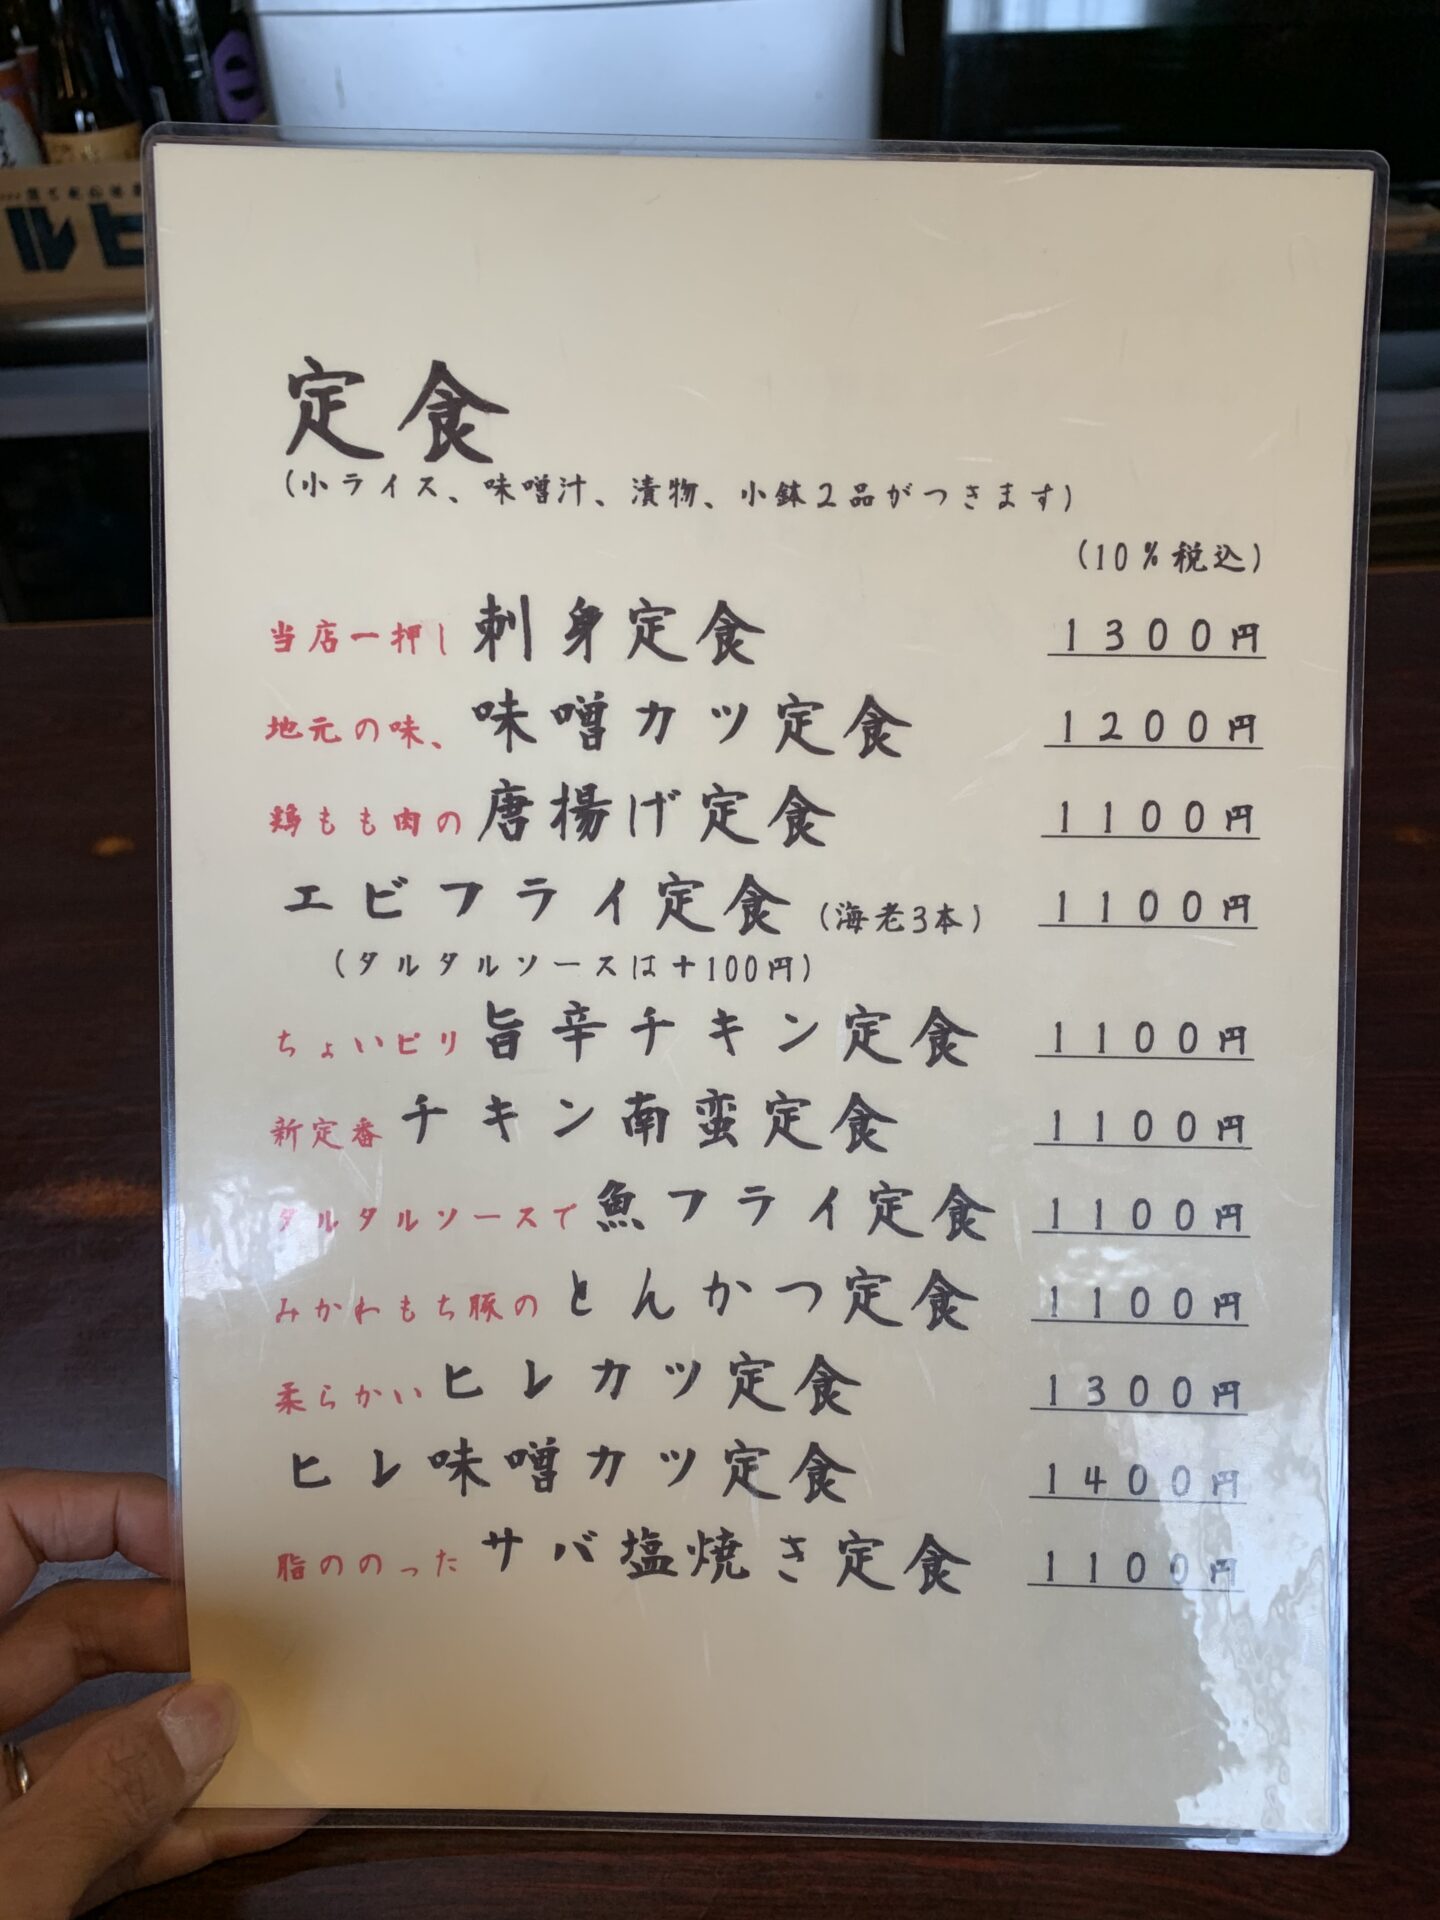 ルビ
定食
(小ライス、味噌汁、漬物、小鉢2品がつきます)
(10%税込)
当店一押し 刺身定食 1300円
地元の味、味噌カツ定食 1200円
鶏もも肉の 唐揚げ定食 1100円
エビフライ定食 (海老3本) 1100円
(タルタルソースは+100円)
ちょいピリ 旨辛チキン定食 1100円
新定番 チキン南蛮定食 1100円
タルタルソースで 魚フライ定食 1100円
みかわもち豚の とんかつ定食 1100円
柔らかい ヒレカツ定食 1300円
ヒレ味噌カツ定食 1400円
脂ののった サバ塩焼き定食 1100円